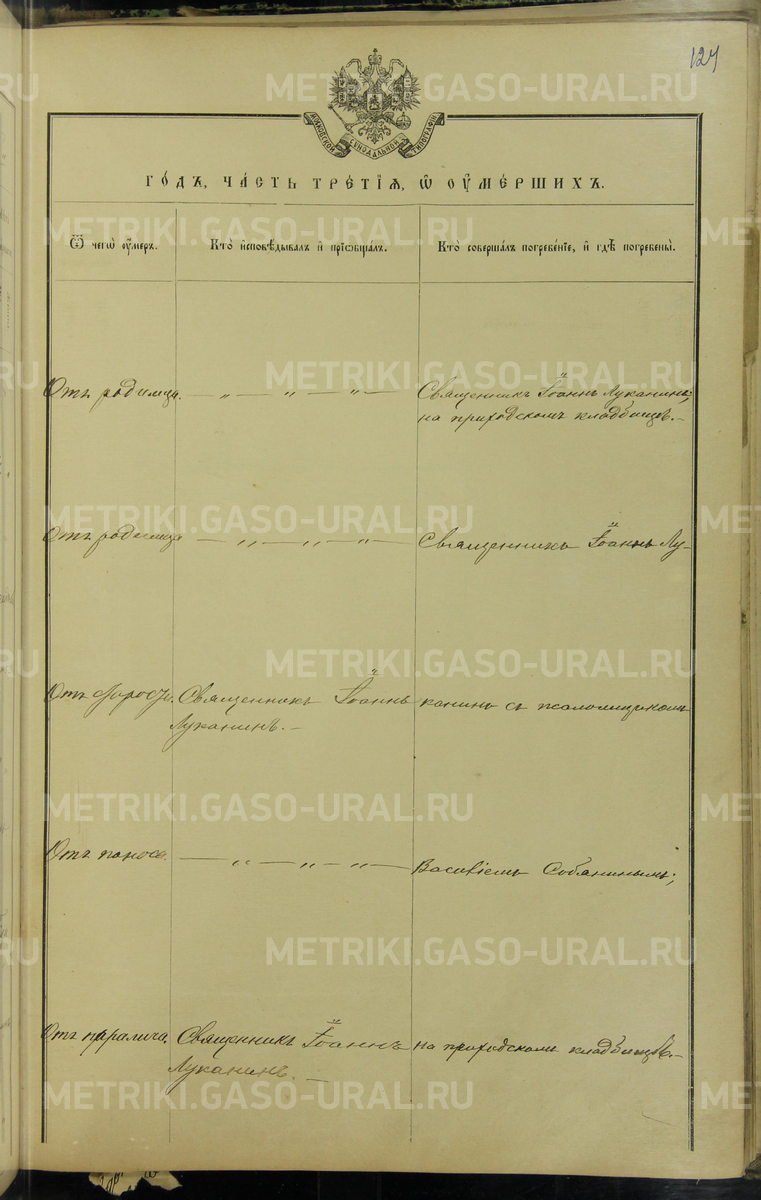 127
МОСКОВСКОЙ СѴНОДАЛЬНОЙ ТИПОГРАФІИ
ГО́ДЪ, ЧА́СТЬ ТРЕ́ТІѦ, Ѡ҆ ОУ҆МЕ́РШИХЪ.
Ѿ чегѡ̀ оу҆́меръ.
Кто̀ и҆сповѣ́дывалъ и҆ прїѡбща́лъ.
Кто̀ соверша́лъ погребе́нїе, и҆ гдѣ̀ погребены̀.
Отъ родимца. — „ — „ — „ —
Священникъ Іоаннъ Луканинъ;
на приходскомъ кладбищѣ. —
Отъ родимца — „ — „ — „ —
Священникъ Іоаннъ Лу-
Отъ
Священникъ Іоаннъ
Луканинъ. —
канинъ съ псаломщикомъ
Отъ поноса. — „ — „ — „ —
Василіемъ Собянинымъ;
Отъ паралича.
Священникъ Іоаннъ
Луканинъ. —
на приходскомъ кладбищѣ. —
METRIKI.GASO-URAL.RU